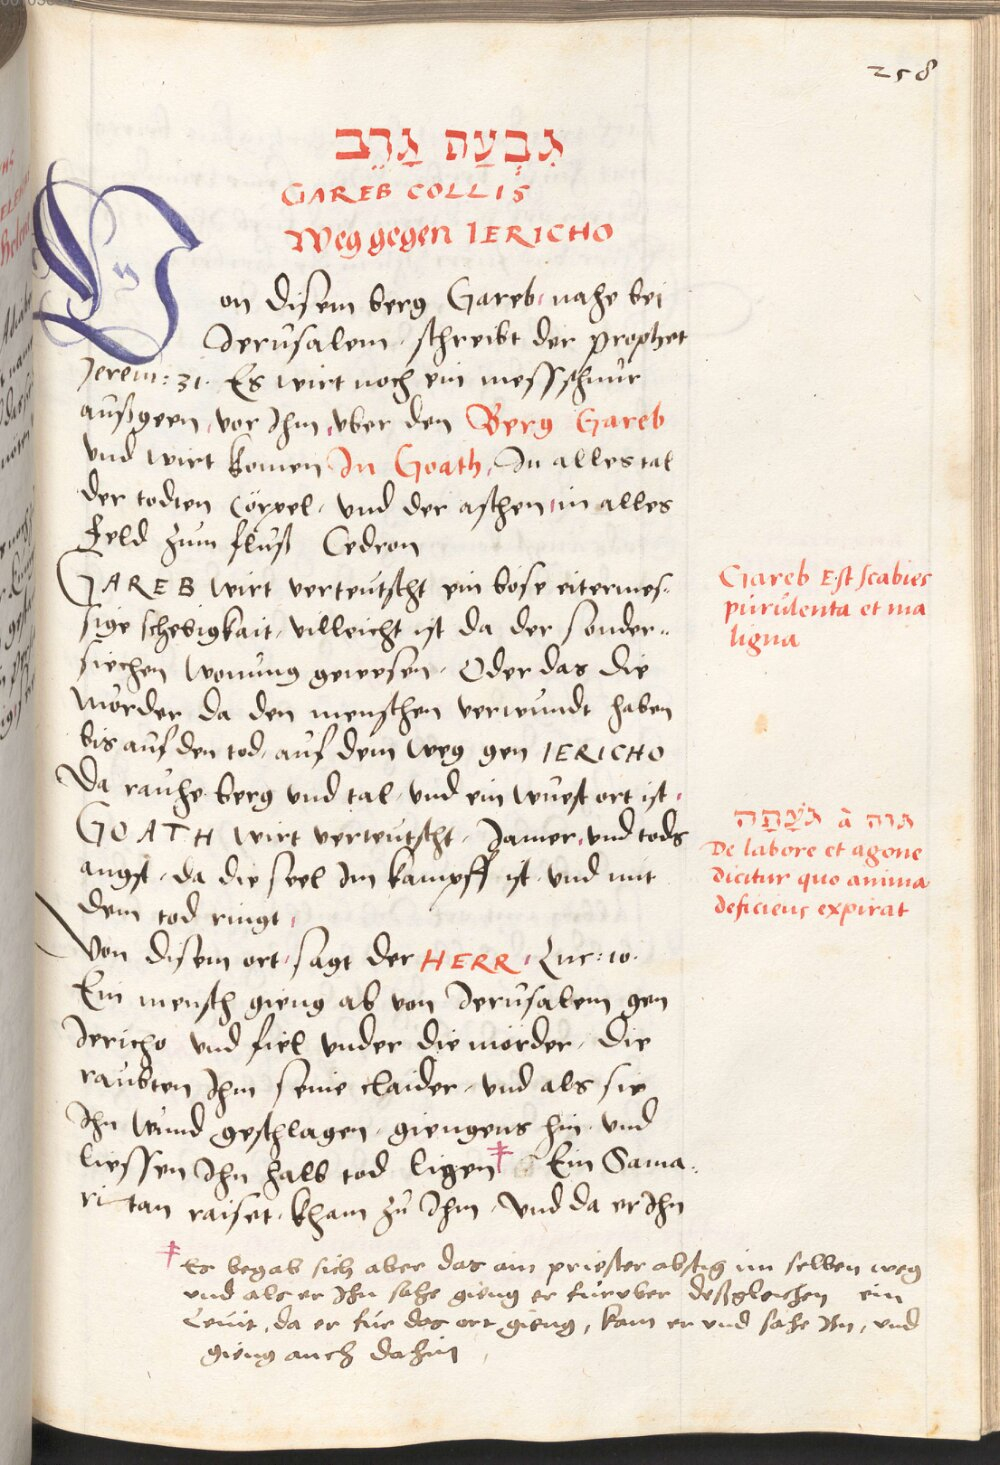 258
גִבְעַת גָּרֵב
GAREB COLLIS
Weg gegen IERICHO
Von disem berg Gareb, nahe bei
Jerusalem, schreibt der prophet
Jerem: 31. Es wirt noch ein messschnur
außgeen, vor Ihm, vber den Berg Gareb
vnd wirt komen In Goath, In alles tal
der todten Cörpel, vnd der aschen, in alles
Feld zum fluß Cedron
GAREB wirt verteutscht ein böse eitermes-
sige schebigkait, villeicht ist da der sonder-
siechen wonung gewesen, Oder das die
mörder da den menschen verwundt haben
bis auf den tod, auf dem weg gen IERICHO
Da rauhe berg vnd tal, vnd ein wüest ort ist,
GOATH wirt verteutscht, Jamer, vnd tods
angst, da die seel Im kampff ist, vnd mit
dem tod ringt,
Von disem ort, sagt der HERR, Luc: 10.
Ein mensch gieng ab von Jerusalem gen
Jericho vnd fiel vnder die mörder, die
raubten Ihm seine claider, vnd als sie
Ihn wund geschlagen, giengens hin, vnd
liessen Ihn halb tod ligen ‡ Ein Sama-
ritan raiset, kham zu Ihm, vnd da er Ihn
‡ Es begab sich aber das ain priester abstig im selben weg
vnd als er Ihn sahe gieng er fürvber deßgleichen ein
Leuit, da er für das ort gieng, kam er vnd sahe Ihn, vnd
gieng auch dahin,
Gareb Est scabies
purulenta et ma
ligna
גֹעָתָה à גוה
De labore et agone
dicitur quo anima
deficiens expirat